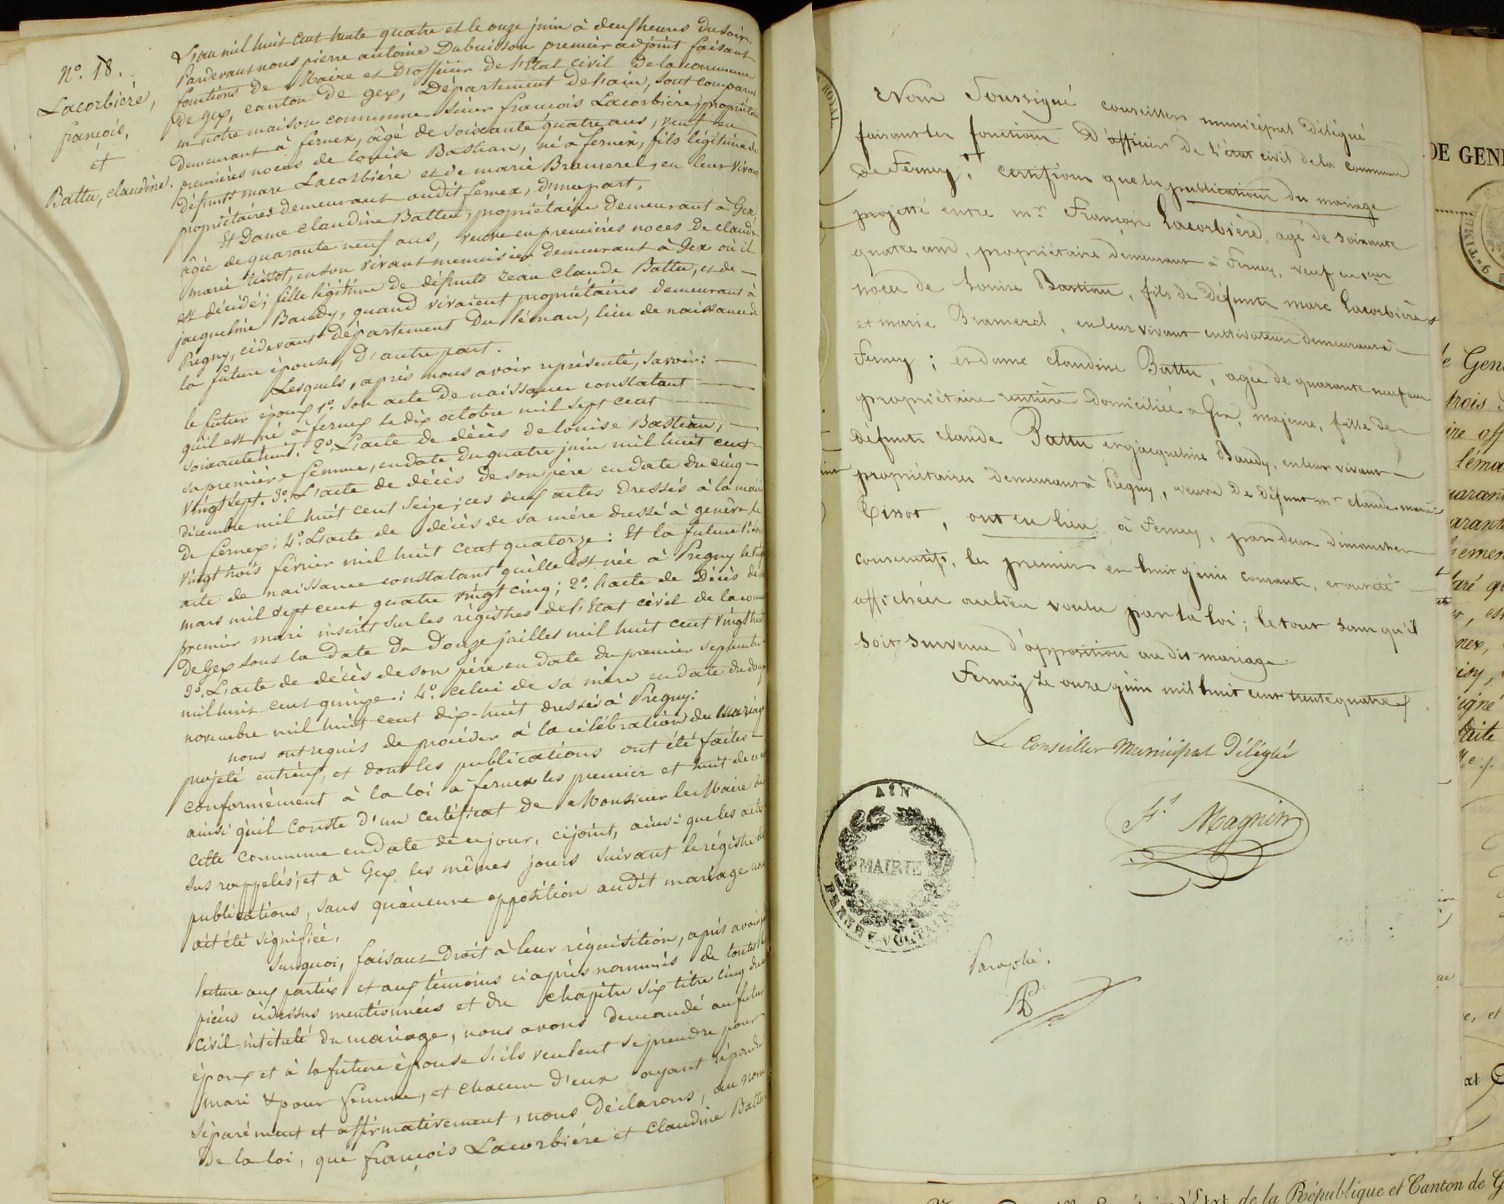 N.o 18.
Lacorbière,
françois,
et
Battu, claudine.
L'an mil huit cent trente quatre et le onze juin à deux heures du soir.
Pardevant nous pierre antoine Dubuisson premier adjoint faisant
fonctions de Maire et D'officier de l'Etat civil De la commune
de Gex, canton de gex, Département de l'ain, sont comparus
en notre maison commune Sieur françois Lacorbière, propriétaire
demeurant à fernex, âgé de soixante quatre ans, veuf en
premières noces de louise Bastian, né à fernex, fils légitime de
défunts marc Lacorbière et de marie Bramerel, en leur vivant
propriétaires demeurant audit fernex, d'une part.
Et Dame claudine Battu, propriétaire demeurant à Gex,
âgée de quarante neuf ans, veuve en premières noces de claude
marie Tissot, en son vivant menuisier demeurant à Gex où il
est décédé; fille légitime de défunts Jean claude Battu, et de
jacqueline Baudy, quand vivaient propriétaires demeurant à
Pregny, cidevant département Du léman, lieu de naissance de
la future épouse, d'autre part.
Lesquels, après nous avoir représenté, savoir:
le futur époux 1.o son acte de naissance constatant
qu'il est né à fernex le dix octobre mil sept cent
soixante huit; 2.o L'acte de décès de louise Bastian,
sa première femme, en date du quatre juin mil huit cent
vingt sept. 3.o L'acte de décès de son père en date du cinq
décembre mil huit cent seize; ces deux actes Dressés à la mairie
de fernex; 4.o L'acte de décès de sa mère dressé à genève le
vingt trois février mil huit cent quatorze: Et la future 1.o son
acte de naissance constatant qu'elle est née à Pregny le
mars mil sept cent quatre vingt cinq; 2.o l'acte de Décès de
premier mari inscrit sur les régistres de l'Etat civil de la
de Gex sous la date du Douze juillet mil huit cent vingt
3.o L'acte de décès de son père en date du premier septembre
mil huit cent quinze: 4.o celui de sa mère en date du
novembre mil huit cent dix-huit dressés à Pregny:
nous ont requis de procéder à la célébration du mariage
projeté entr'eux, et dont les publications ont été faites
conformément à la loi à fernex les premier et huit de
ainsi qu'il conste d'un certificat de Monsieur le Maire de
cette commune en date de ce jour, cijoint, ainsi que les actes
sus rappelés; et à Gex les mêmes jours suivant le régistre de
publications, sans qu'aucune opposition audit mariage
ait été signifiée.
Surquoi, faisant Droit à leur réquisition, après avoir
lecture aux parties et aux témoins ciaprès nommés de toutes
pièces cidessus mentionnées et du chapitre six titre cinq du
civil intitulé Du mariage, nous avons demandé au futur
époux et à la future épouse s'ils veulent se prendre pour
mari & pour femme, et chacun d'eux ayant répondu
séparément et affirmativement, nous Déclarons, au nom
De la loi, que françois Lacorbière et Claudine Battu
ROYAL
Nous Soussigné conseiller municipal Délégué
faisant les fonctions D'officier de l'état civil de la commune
de Ferney, certifions que les publications du mariage
projetté entre mr. François Lacorbière, agé de soixante
quatre ans, propriétaire demeurant à Ferney, veuf en
noces de Louise Bastian, fils de Défunts marc Lacorbière
et marie Bramerel, en leur vivant cultivateurs demeurant à
Ferney; et dame claudine Battu, agée de quarante neuf ans
propriétaire rentière domiciliée à Gex, majeure, fille de
défunts claude Battu et jacqueline Baudy, en leur vivant
propriétaires demeurant à Pregny, veuve de défunt mr. claude marie
Tissot, ont eu lieu à Ferney, par deux dimanches
consécutifs, les premier et huit juin courant, et ont été
affichées au lieu voulu par la loi; le tout sans qu'il
soit survenu d'opposition au dit mariage.
Ferney le onze juin mil huit cent trente quatre
Le Conseiller Municipal Délégué
Magnin
AIN
MAIRIE
FERNEY-VOLTAIRE
Paraphé.
DE GEN
de la République et Canton de G